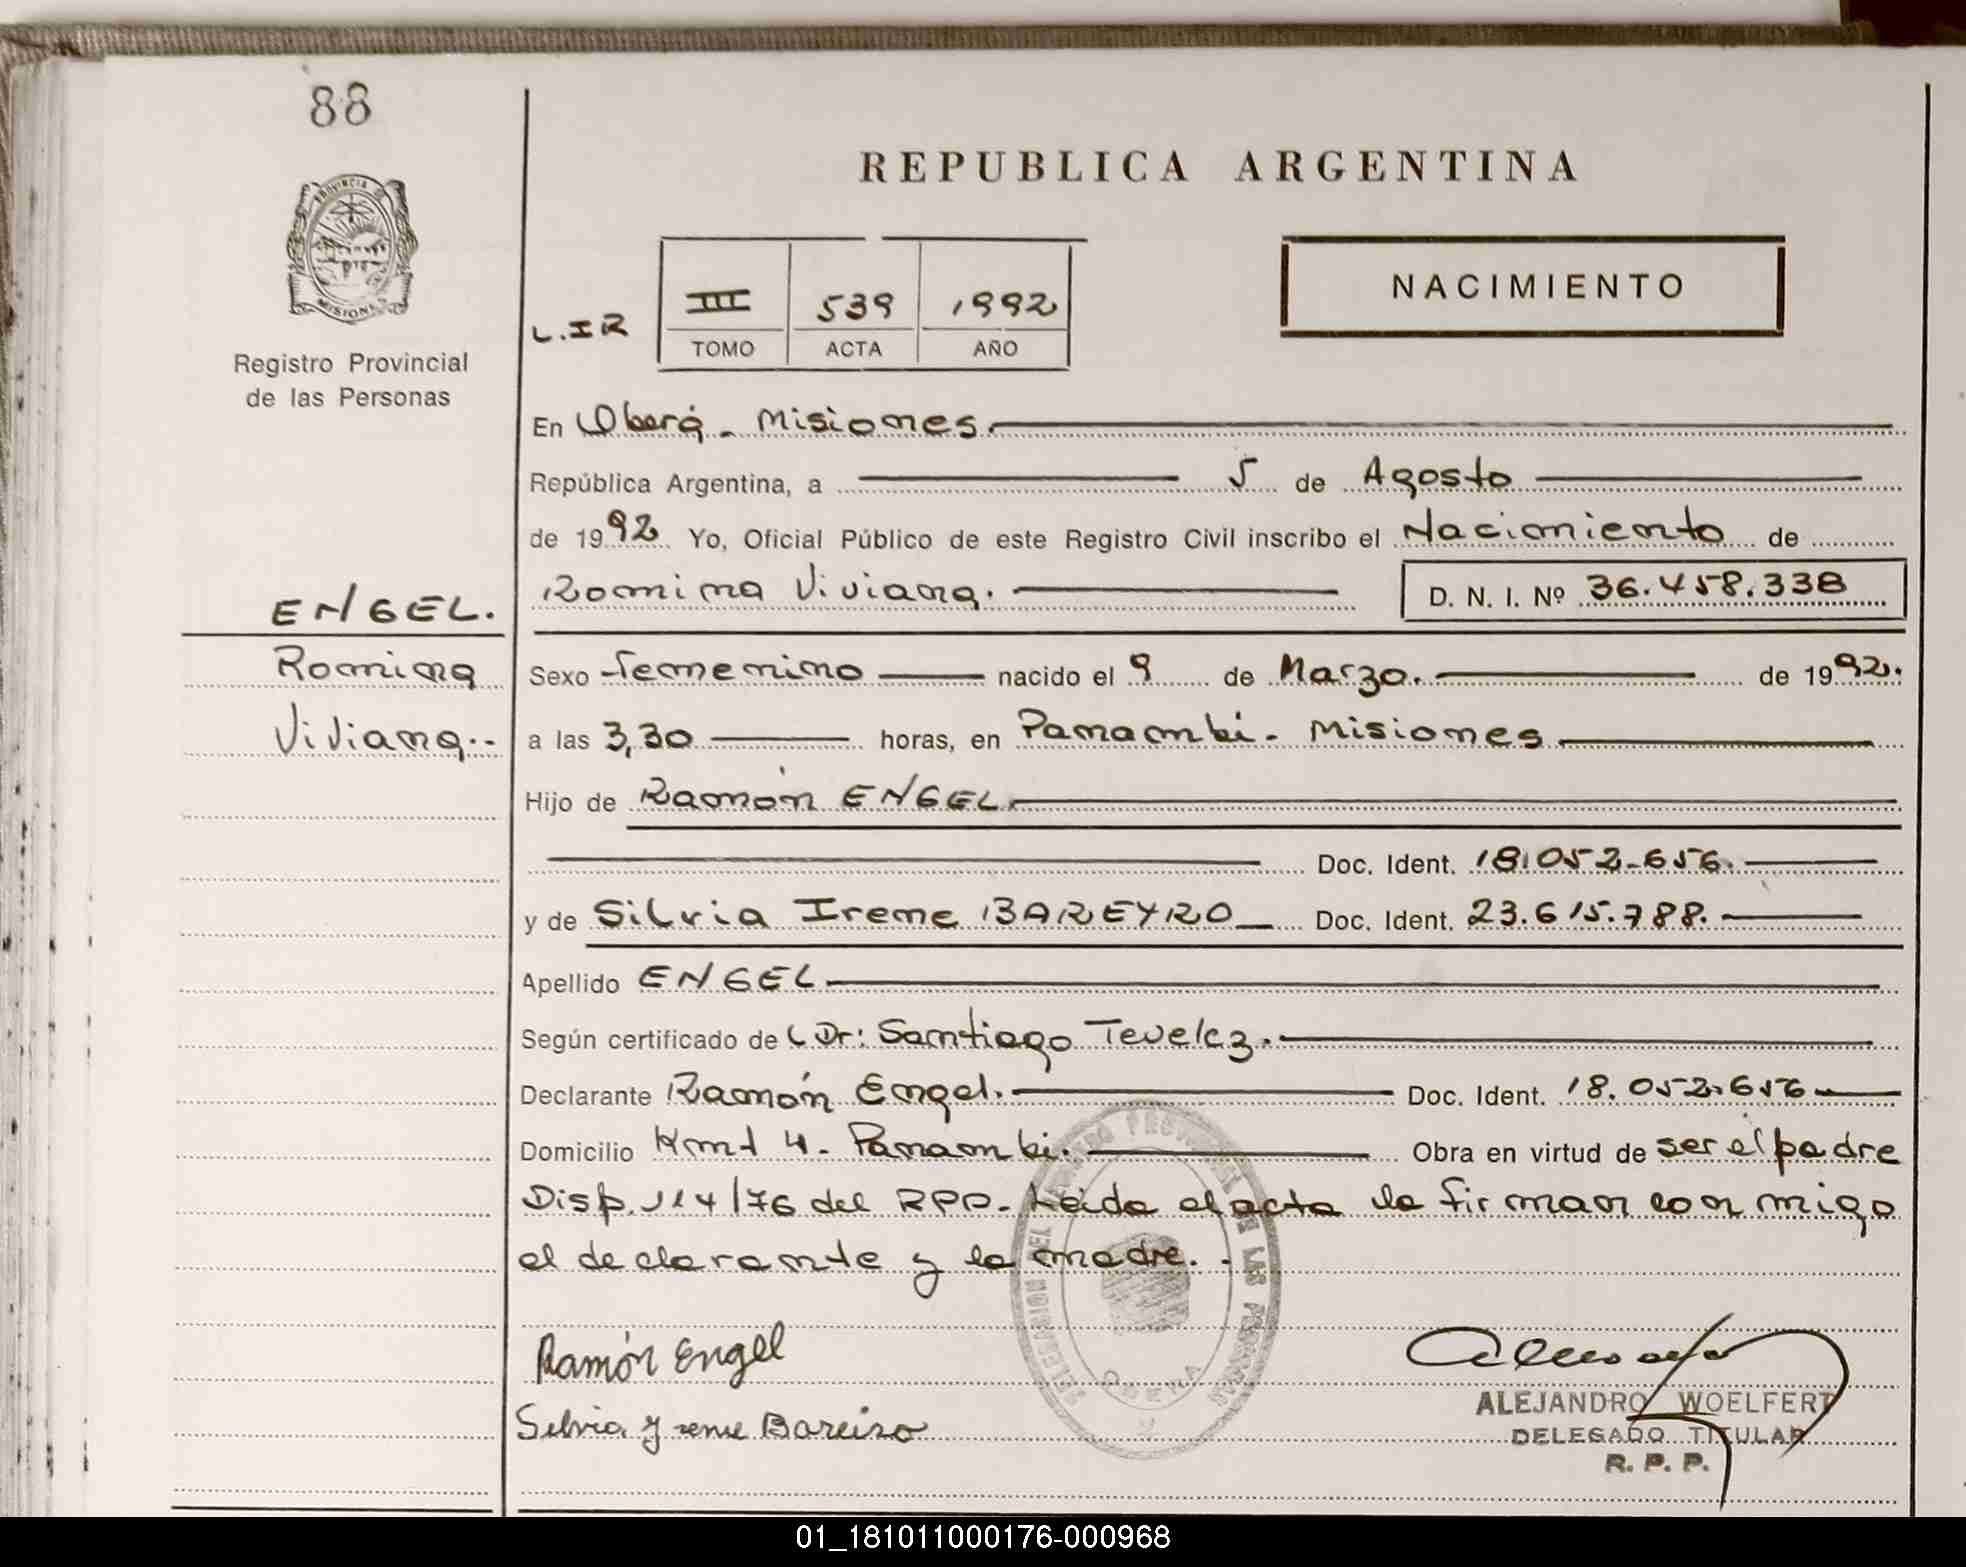 88
REPUBLICA ARGENTINA
PROVINCIA DE
MISIONES
Registro Provincial
de las Personas
L.IR
III 539 1992
TOMO ACTA AÑO
NACIMIENTO
En Oberá - Misiones.
República Argentina, a 5 de Agosto
de 1992 Yo, Oficial Público de este Registro Civil inscribo el Nacimiento de
Romina Viviana. D. N. I. Nº 36.458.338
ENGEL.
Romina
Viviana.-
Sexo femenino nacido el 9 de Marzo. de 1992.
a las 3,30 horas, en Panambí - Misiones
Hijo de Ramón ENGEL
Doc. Ident. 18.052.656.
y de Silvia Irene BAREYRO Doc. Ident. 23.615.788.
Apellido ENGEL
Según certificado de Dr: Santiago Tevelez.
Declarante Ramón Engel. Doc. Ident. 18.052.656
Domicilio Kmt 4 - Panambí. Obra en virtud de ser el padre
Disp. 114/76 del RPP. Leida el acta la firman conmigo
el declarante y la madre. -
DELEGACION DEL REGISTRO PROVINCIAL DE LAS PERSONAS
OBERA
Ramón Engel
Silvia Yrene Bareiro
ALEJANDRO WOELFERT
DELEGADO TITULAR
R. P. P.
01_181011000176-000968